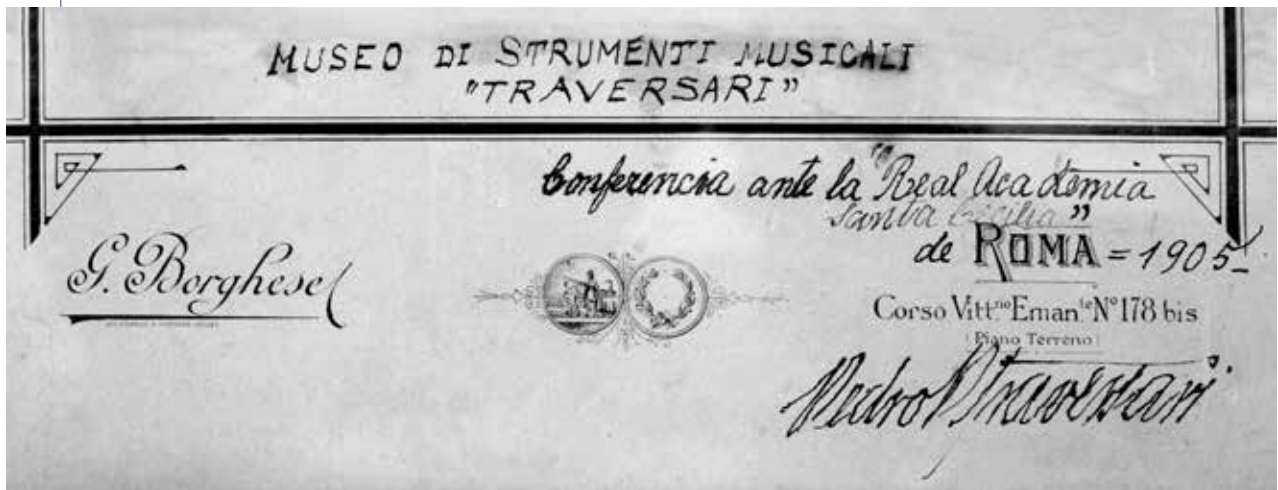 MUSEO DI STRUMENTI MUSICALI
"TRAVERSARI"
Conferencia ante la "Real Academia
Santa Cicilia"
de ROMA = 1905
G. Borghese
Corso Vitt.no Eman.le Nº 178 bis
(Piano Terreno)
Pedro P Traversari